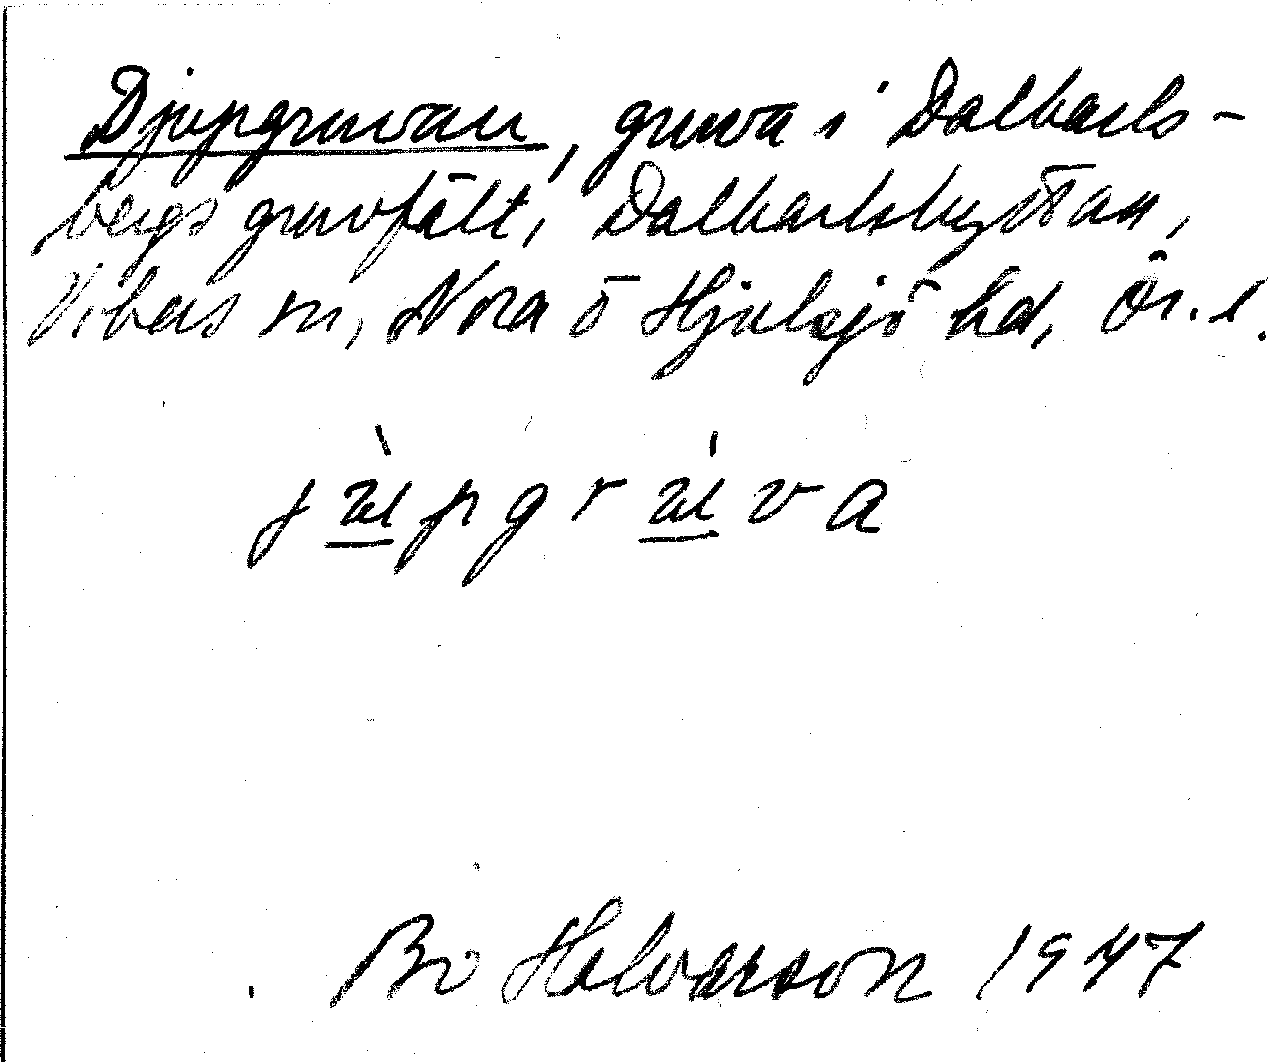 Djupgruvan, gruva i Dalkarls-
bergs gruvfält, Dalkarlshyttan,
Vikers sn, Nora o Hjulsjö hd, Ör. l.
jùpgrúva
Bo Halvarson 1947